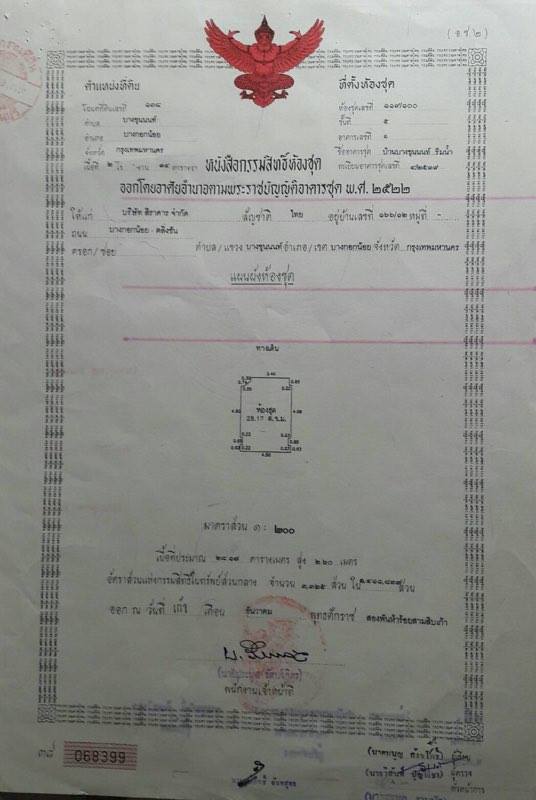 (อ.ช.๒)
ตำแหน่งที่ดิน
โฉนดที่ดินเลขที่ ๑๓๘
ตำบล บางขุนนนท์
อำเภอ บางกอกน้อย
จังหวัด กรุงเทพมหานคร
เนื้อที่ ๒ ไร่ - งาน ๑๕ ตารางวา
ที่ตั้งห้องชุด
ห้องชุดเลขที่ ๑๑๙/๑๐๐
ชั้นที่ ๕
อาคารเลขที่ ๑
ชื่ออาคารชุด บ้านบางขุนนนท์ ริมน้ำ
ทะเบียนอาคารชุดเลขที่ ๔/๒๕๓๙
หนังสือกรรมสิทธิ์ห้องชุด
ออกโดยอาศัยอำนาจตามพระราชบัญญัติอาคารชุด พ.ศ. ๒๕๒๒
ให้แก่ บริษัท สิราคาร จำกัด สัญชาติ ไทย อยู่บ้านเลขที่ ๑๖๖/๑๒ หมู่ที่ -
ถนน บางกอกน้อย - ตลิ่งชัน
ตรอก/ซอย ตำบล/แขวง บางขุนนนท์ อำเภอ/เขต บางกอกน้อย จังหวัด กรุงเทพมหานคร
แผนผังห้องชุด
ทางเดิน
ห้องชุด
28.17 ต.ร.ม.
มาตราส่วน ๑ : ๒๐๐
เนื้อที่ประมาณ ๒๘.๑๗ ตารางเมตร สูง ๒.๖๐ เมตร
อัตราส่วนแห่งกรรมสิทธิ์ในทรัพย์ส่วนกลาง จำนวน ส่วน ใน ส่วน
ออก ณ วันที่ เก้า เดือน ธันวาคม พุทธศักราช สองพันห้าร้อยสามสิบเก้า
พนักงานเจ้าหน้าที่
068399